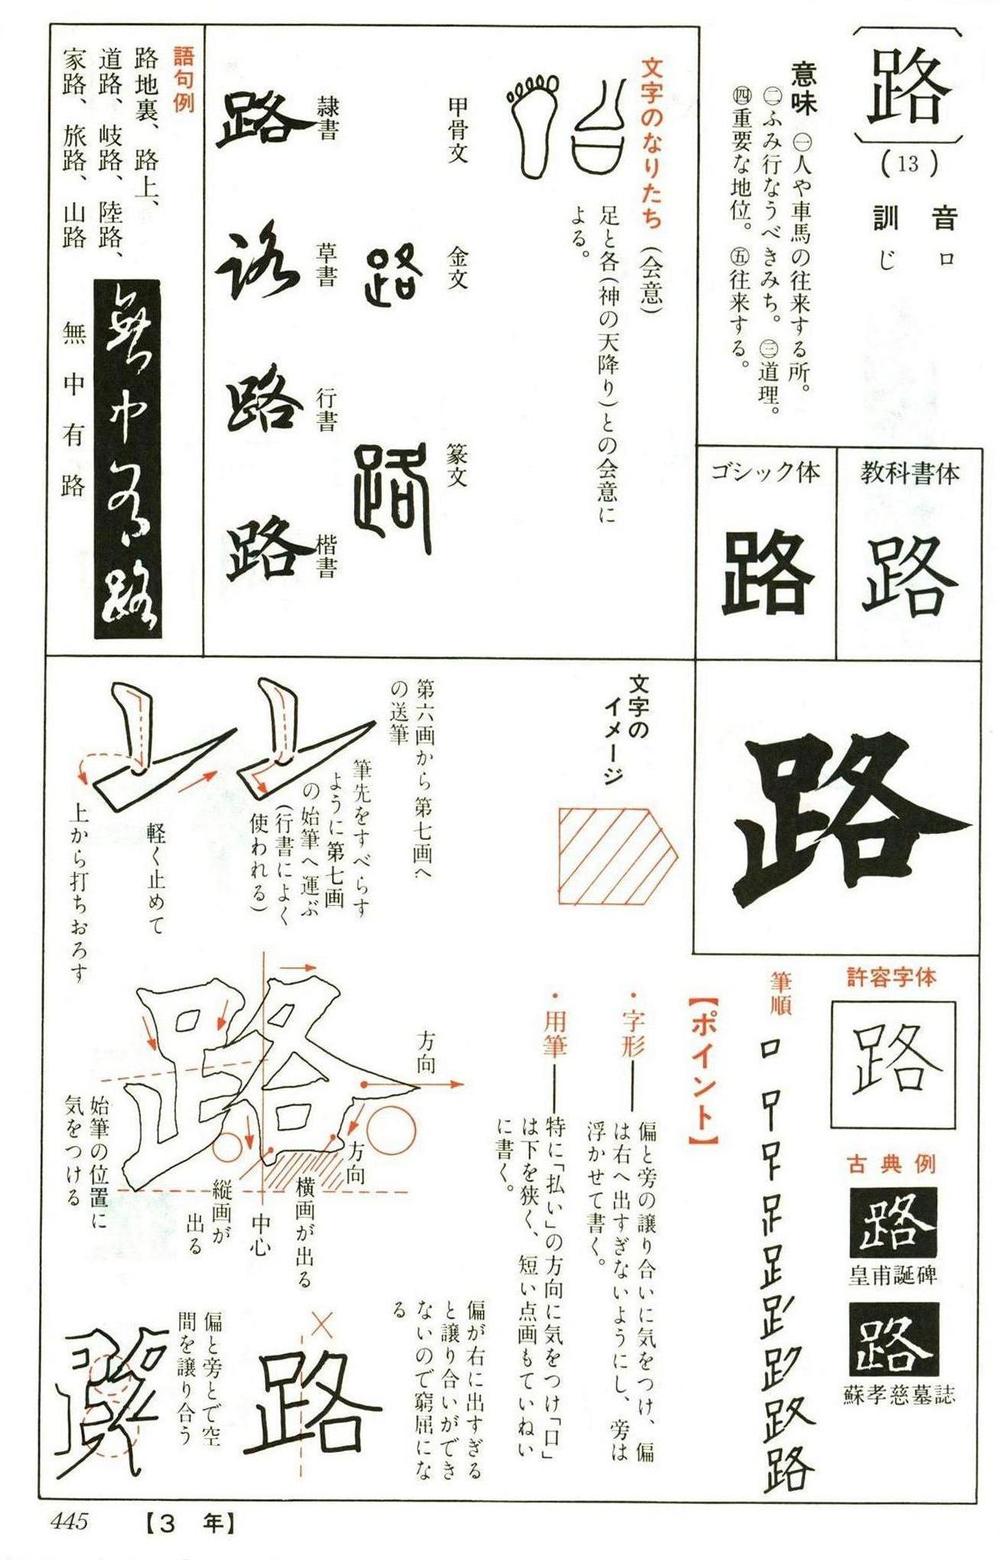 路
(13)
音 ロ
訓 じ
意味 ㊀人や車馬の往来する所。
㊁ふみ行なうべきみち。㊂道理。
㊃重要な地位。㊄往来する。
教科書体
路
ゴシック体
路
文字のなりたち (会意)
足と各(神の天降り)との会意に
よる。
甲骨文
金文
路
篆文
路
隷書
路
草書
路
行書
路
楷書
路
語句例
路地裏、路上、
道路、岐路、陸路、
家路、旅路、山路
無中有路
無中有路
路
許容字体
路
古典例
路
皇甫誕碑
路
蘇孝慈墓誌
筆順
路
路
文字の
イメージ
【ポイント】
・字形——偏と旁の譲り合いに気をつけ、偏
は右へ出すぎないようにし、旁は
浮かせて書く。
・用筆——特に「払い」の方向に気をつけ「口」
は下を狭く、短い点画もていねい
に書く。
第六画から第七画へ
の送筆
筆先をすべらす
ように第七画
の始筆へ運ぶ
(行書によく
使われる)
軽く止めて
上から打ちおろす
路
方向
方向
横画が出る
中心
縦画が
出る
始筆の位置に
気をつける
偏が右に出すぎる
と譲り合いができ
ないので窮屈にな
る
×
路
偏と旁とで空
間を譲り合う
路
445
【3 年】